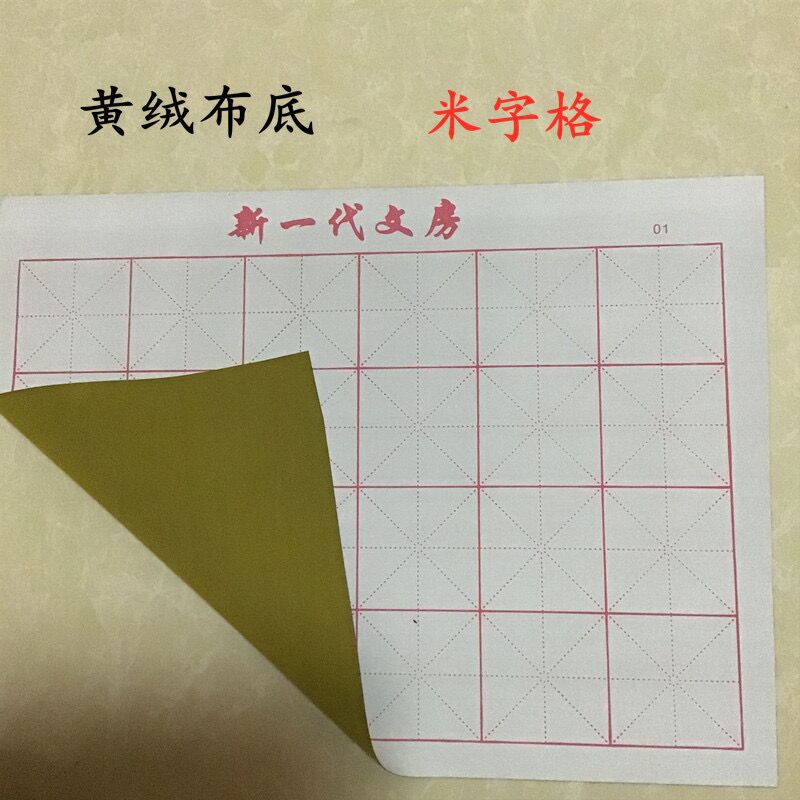 黄绒布底 米字格
新一代文房
01